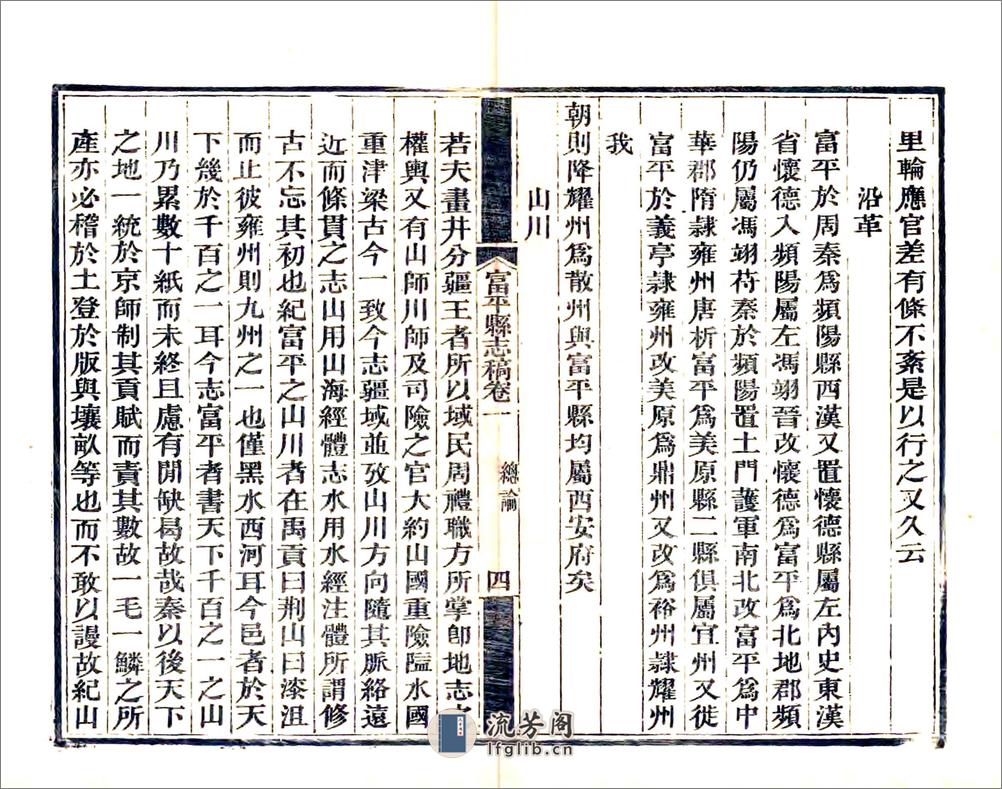 里輪應官差有條不紊是以行之又久云
沿革
富平於周秦爲頻陽縣西漢又置懷德縣屬左內史東漢
省懷德入頻陽屬左馮翊晉改懷德爲富平爲北地郡頻
陽仍屬馮翊苻秦於頻陽置土門護軍南北改富平爲中
華郡隋隷雍州唐析富平爲美原縣二縣俱屬宜州又徙
富平於義亭隷雍州改美原爲鼎州又改爲裕州隷耀州
我
朝則降耀州爲散州與富平縣均屬西安府矣
山川
富平縣志稿卷一
總論
四
若夫畫井分疆王者所以域民周禮職方所掌卽地志
權輿又有山師川師及司險之官大約山國重險隘水國
重津梁古今一致今志疆域並攷山川方向隨其脈絡遠
近而條貫之志山用山海經體志水用水經注體所謂修
古不忘其初也紀富平之山川者在禹貢曰荆山曰漆沮
而止彼雍州則九州之一也僅黑水西河耳今邑者於天
下幾於千百之一耳今志富平者書天下千百之一之山
川乃累數十紙而未終且慮有閒缺曷故哉秦以後天下
之地一統於京師制其貢賦而責其數故一毛一鱗之所
產亦必稽於土登於版與壤畝等也而不敢以謾故紀山
流芳阁
lfglib.cn